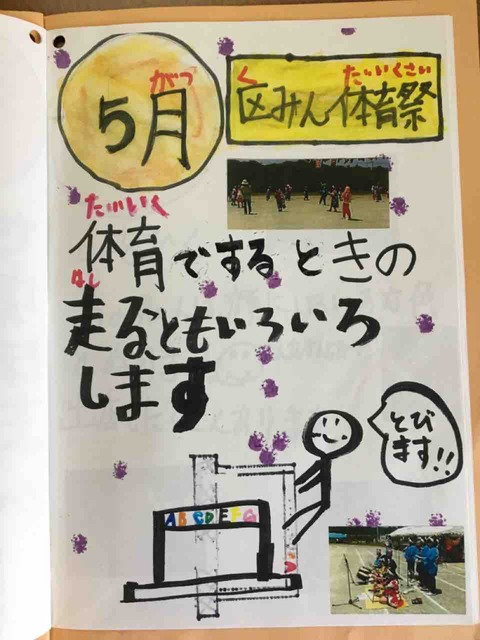 がつ
5月
く たいいくさい
区みん体育祭
たいいく
体育でするときの
はし
走る、ともいろいろ
します
とび
ます!!
ABCDEFG
S